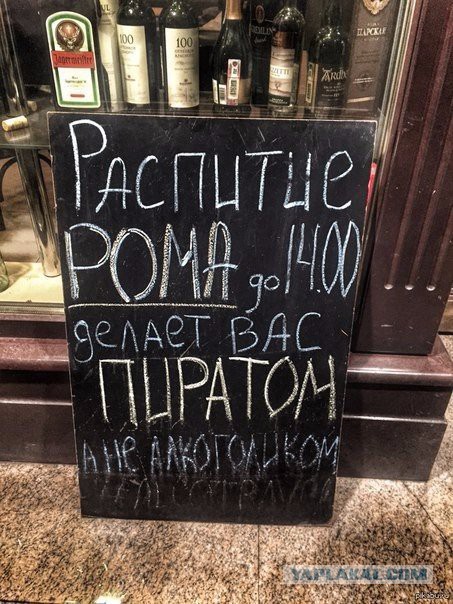 Jägermeister
100
100
KREMLIN
ЦАРСКАЯ
Распитие
РОМА до 14.00
делает ВАС
ПИРАТОМ
А НЕ АЛКОГОЛИКОМ
YAPLAKAL.COM
pikabu.ru